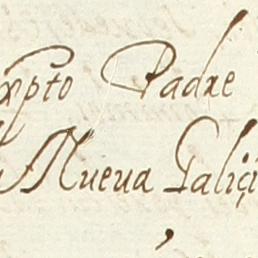 xpto Padre
Nueva Galiçi